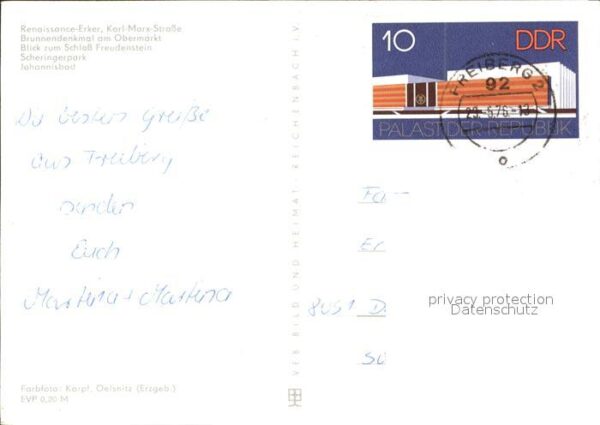 Renaissance-Erker, Karl-Marx-Straße
Brunnendenkmal am Obermarkt
Blick zum Schloß Freudenstein
Scheringerpark
Johannisbad
10
DDR
PALAST DER REPUBLIK
FREIBERG 2
92
Die besten Grüße
aus Freiberg
senden
Euch
Martina + Martina
VEB BILD UND HEIMAT · REICHENBACH i. V.
Fa
Er
8051 D
privacy protection
Datenschutz
Farbfoto: Karpf, Oelsnitz (Erzgeb.)
EVP 0,20 M